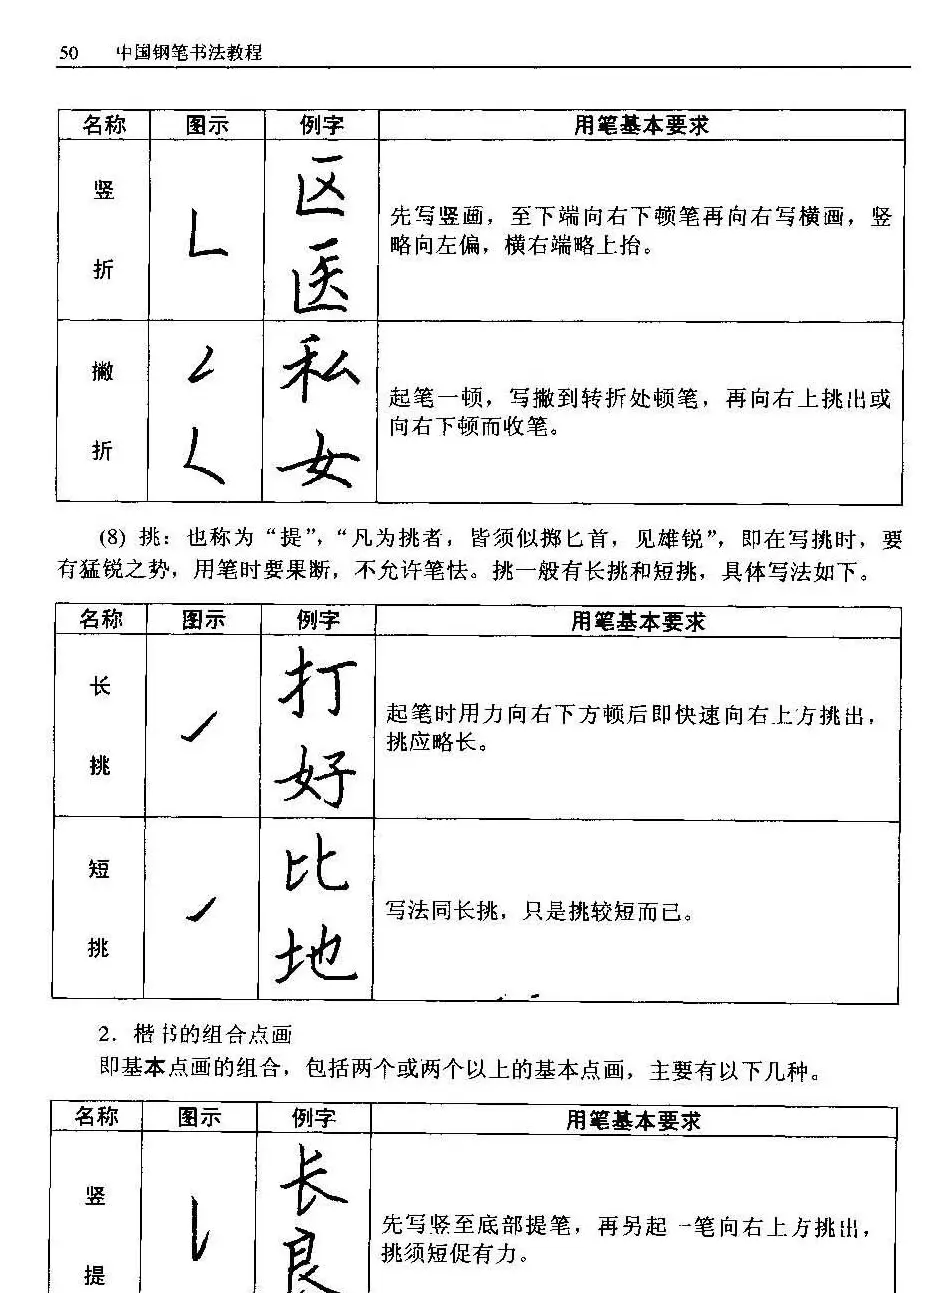 50 中国钢笔书法教程
名称 图示 例字 用笔基本要求
竖折 区医 先写竖画，至下端向右下顿笔再向右写横画，竖
略向左偏，横右端略上抬。
撇折 私女 起笔一顿，写撇到转折处顿笔，再向右上挑出或
向右下顿而收笔。
(8) 挑：也称为“提”，“凡为挑者，皆须似掷匕首，见雄锐”，即在写挑时，要
有猛锐之势，用笔时要果断，不允许笔怯。挑一般有长挑和短挑，具体写法如下。
名称 图示 例字 用笔基本要求
长挑 打好 起笔时用力向右下方顿后即快速向右上方挑出，
挑应略长。
短挑 比地 写法同长挑，只是挑较短而已。
2．楷书的组合点画
即基本点画的组合，包括两个或两个以上的基本点画，主要有以下几种。
名称 图示 例字 用笔基本要求
竖提 长良 先写竖至底部提笔，再另起一笔向右上方挑出，
挑须短促有力。